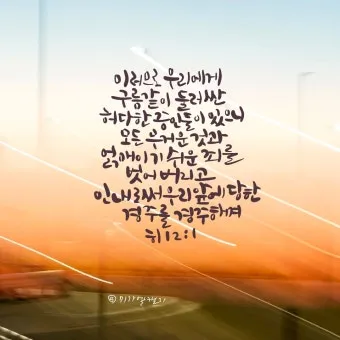 이러므로 우리에게
구름같이 둘러싼
허다한 증인들이 있으니
모든 무거운 것과
얽매이기 쉬운 죄를
벗어 버리고
인내로써 우리 앞에 당한
경주를 경주하며
히 12:1